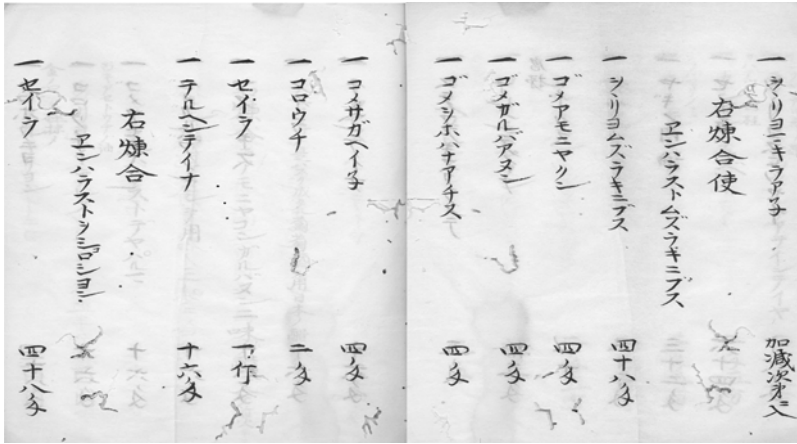 一 シリヨニキラアヽ子 加減次第ニ入
右煉合使
ヱンハラストムズラギニブス
一 シリヨムズラキニブス 四十八匁
一 ゴメアモニヤクン 四匁
一 ゴメガルバアヌン 四匁
一 ゴメシホハナアチス 二匁
一 コメサガヘイ子 四匁
一 コロウチ 二匁
一 セイラ 一作
一 テルヘンテイナ 十六匁
右煉合
ヱンハラストシシロシヨン
一 セイラ 四十八匁